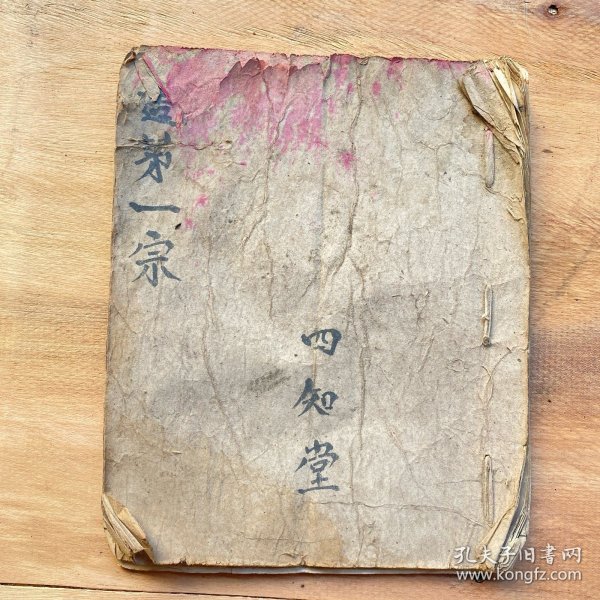 四知堂
第一宗
孔夫子旧书网
www.kongfz.com